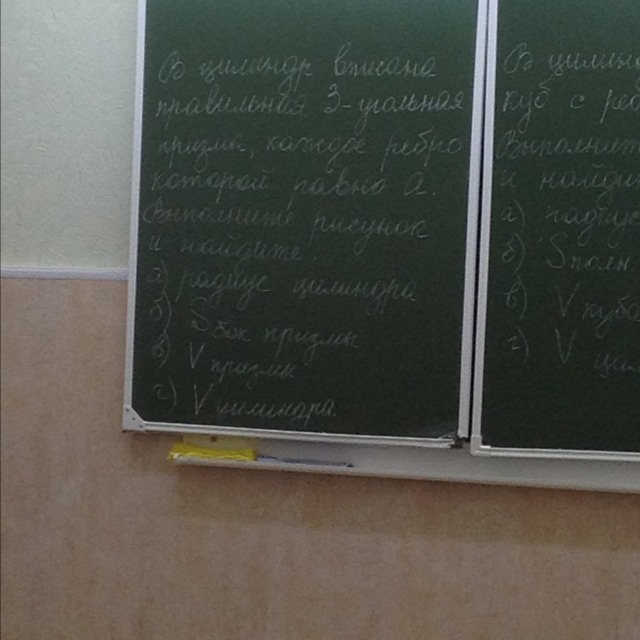 В цилиндр вписана
правильная 3-угольная
призма, каждое ребро
которой равно a.
Выполните рисунок
и найдите:
а) радиус цилиндра
б) Sбок призмы
в) V призмы
г) V цилиндра.
В цилинд
куб с реб
Выполнит
и найди
а) радиу
б) Sполн
в) V куба
г) V ци